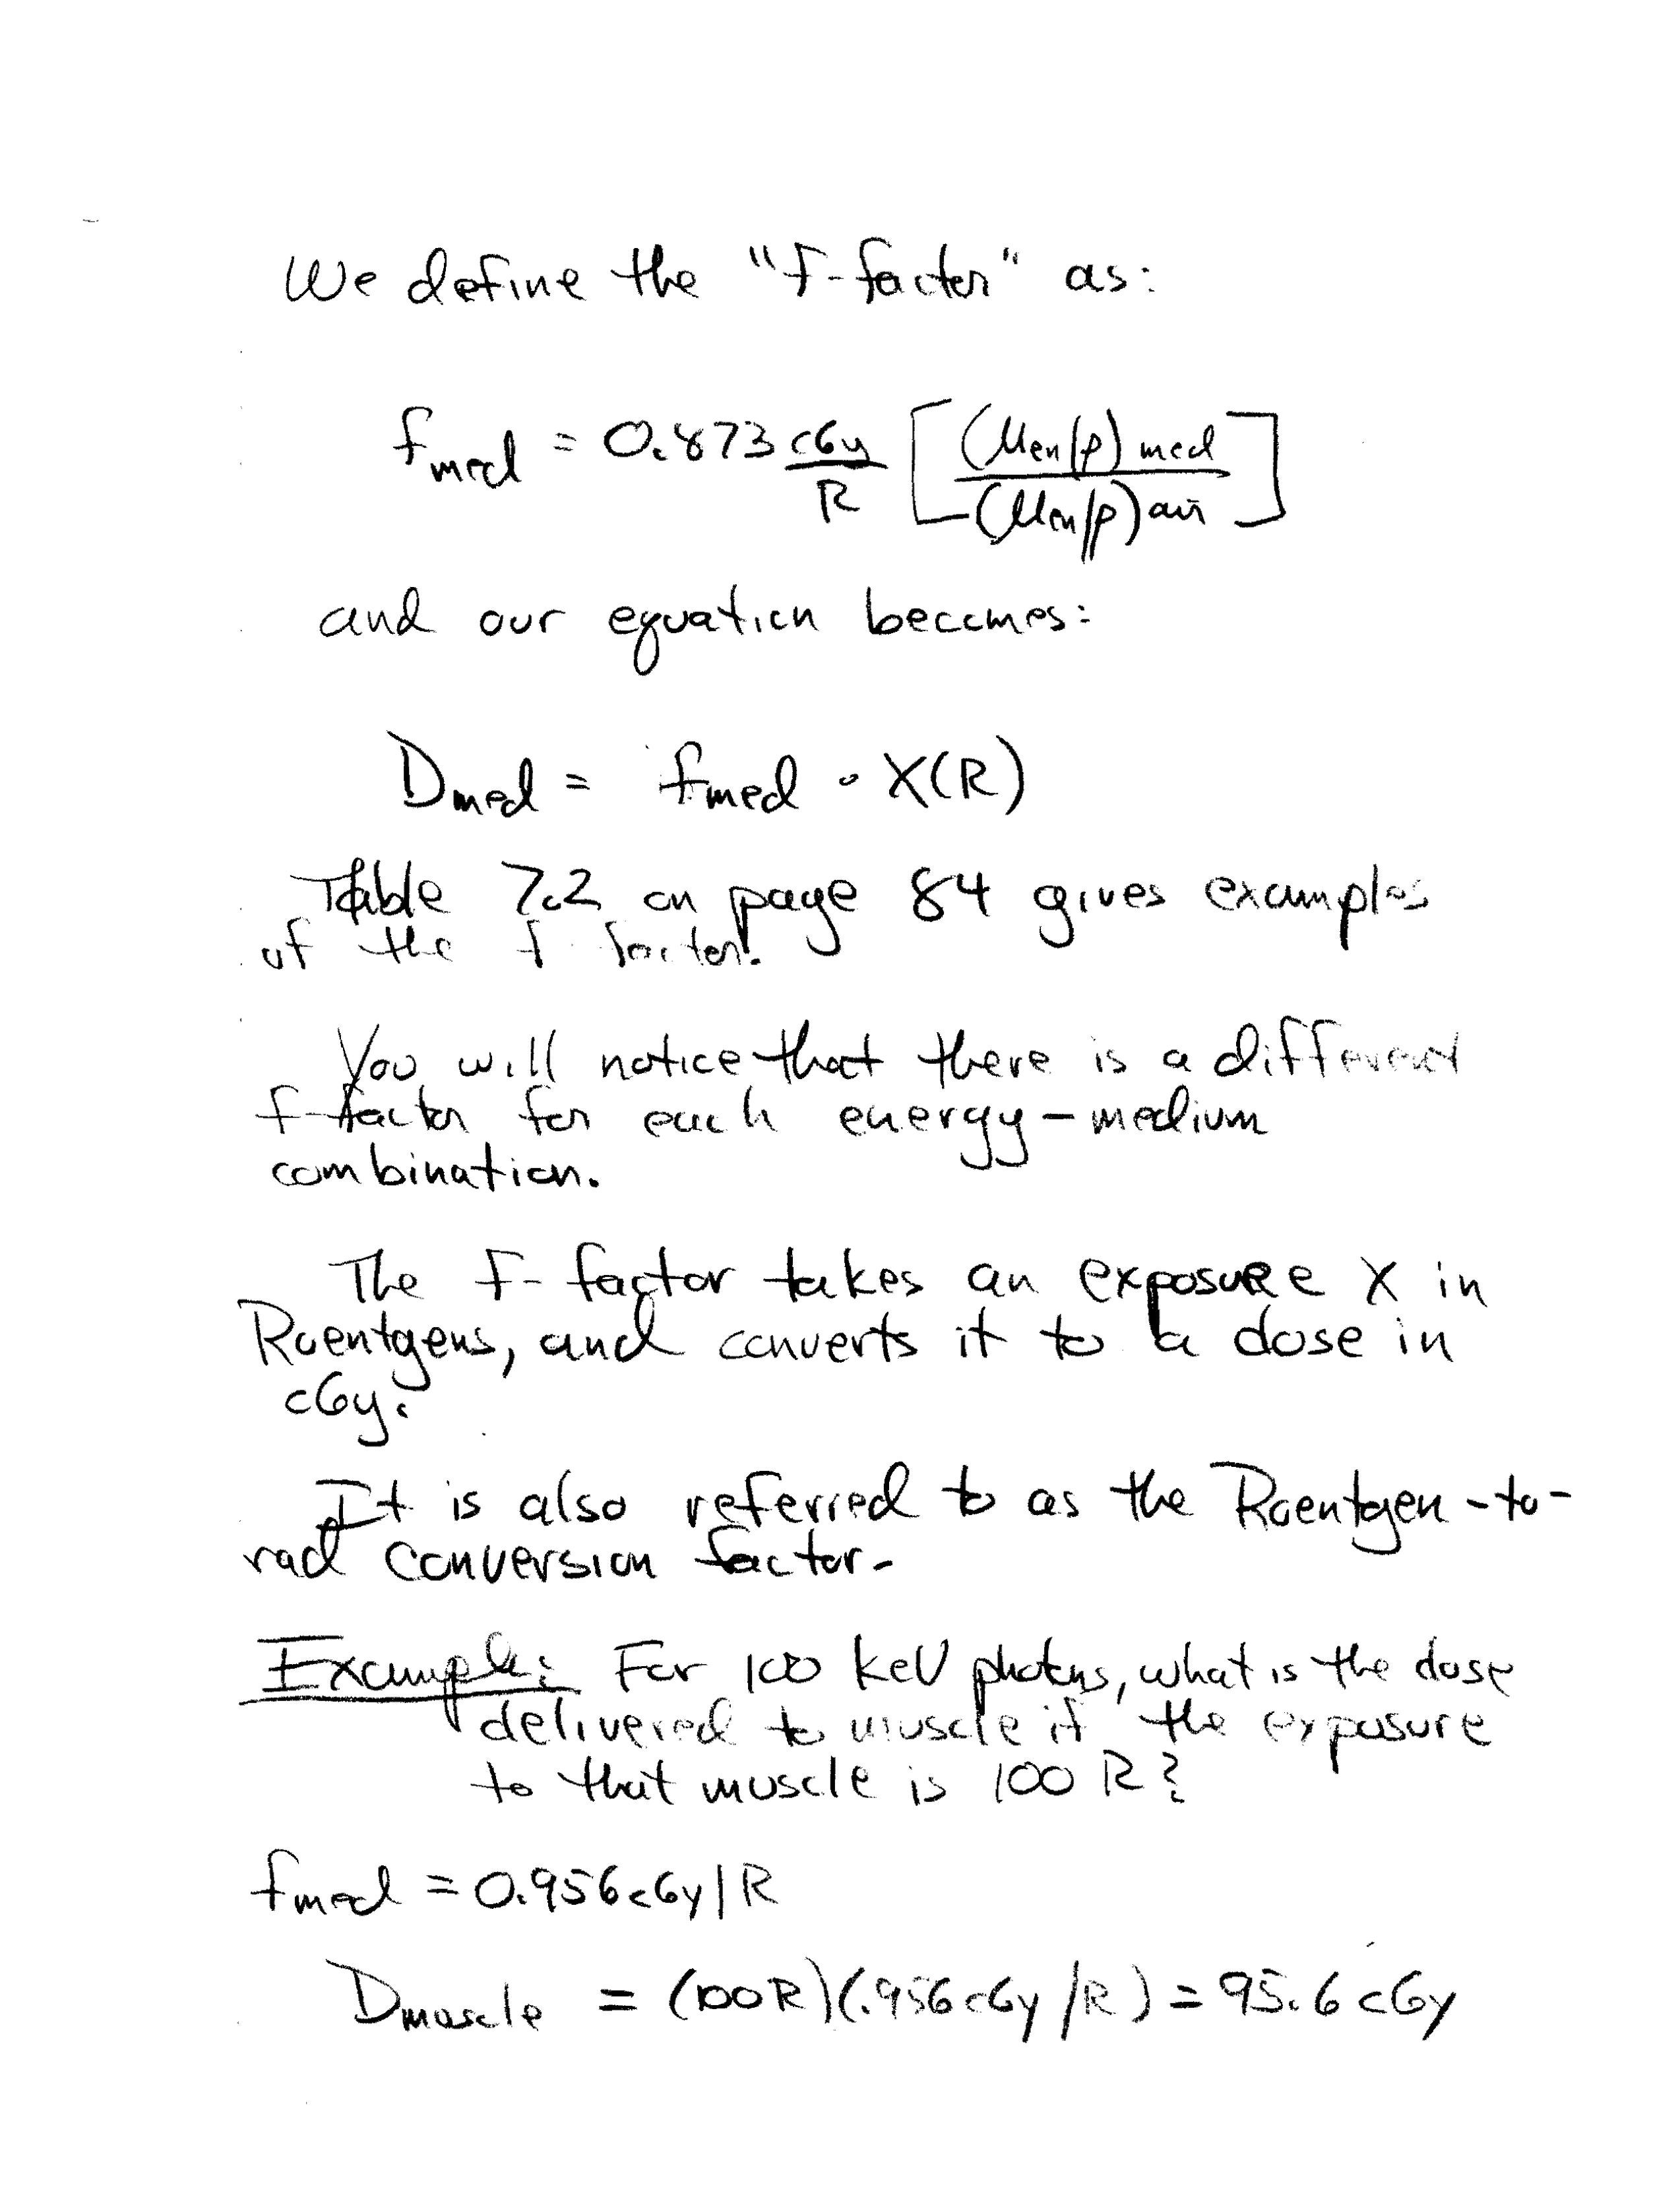 We define the "f-factor" as:
fmed = 0.873 cGy/R [(μen/ρ)med / (μen/ρ)air]
and our equation becomes:
Dmed = fmed · X(R)
Table 7.2 on page 84 gives examples
of the f factor.
You will notice that there is a different
f-factor for each energy-medium
combination.
The f-factor takes an exposure X in
Roentgens, and converts it to a dose in
cGy.
It is also referred to as the Roentgen-to-
rad conversion factor.
Example: For 100 keV photons, what is the dose
delivered to muscle if the exposure
to that muscle is 100 R?
fmed = 0.956 cGy/R
Dmuscle = (100R)(.956 cGy/R) = 95.6 cGy